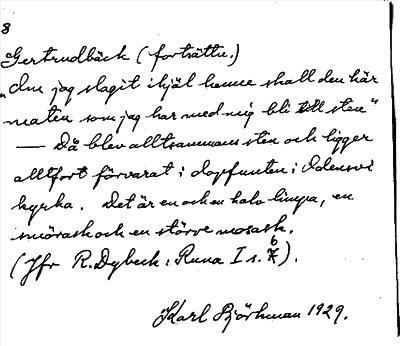 8
Gertrudbäck (fortsättn.)
"Om jag slagit ihjäl henne skall den här
maten som jag har med mig bli till sten"
— Då blev alltsammans sten och ligger
alltfort förvarat i dopfunten i Odensvi
kyrka. Det är en och en halv limpa, en
smörask och en större mosask.
(Jfr R. Dybeck: Runa I s. 6).
Karl Björkman 1929.